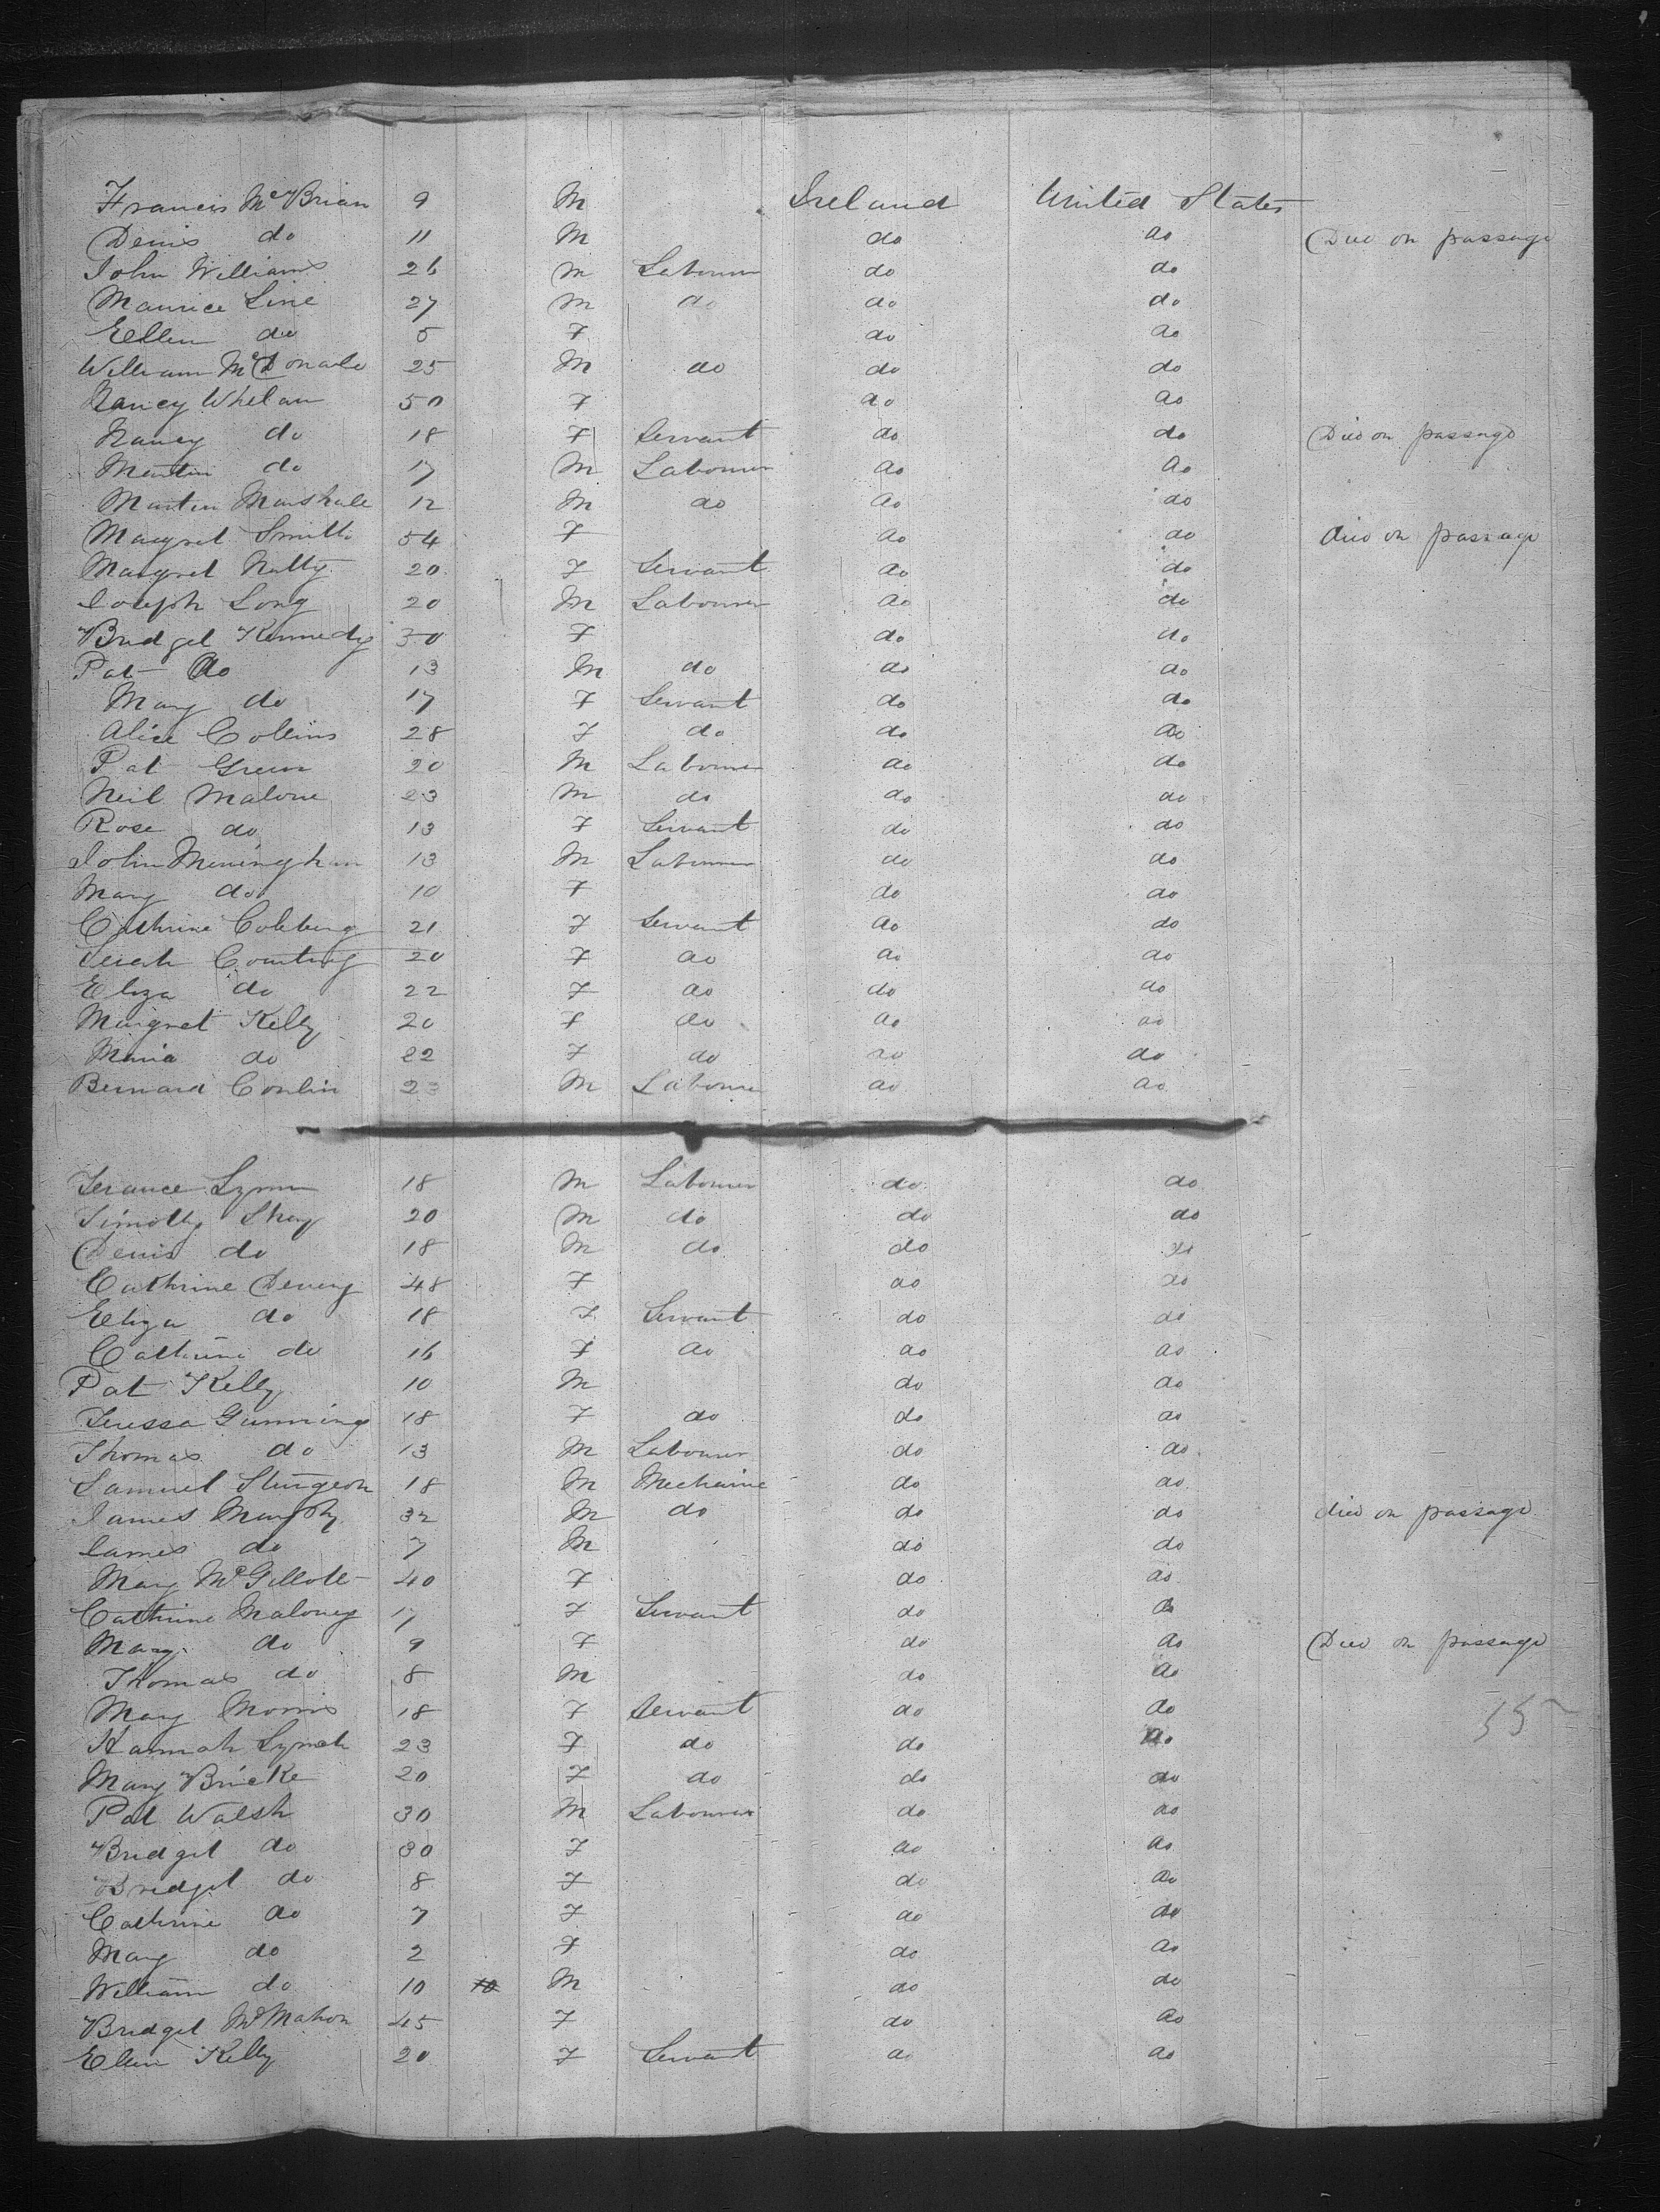 Francis McBrian 9 M Ireland United States
Denis do 11 M do do Died on passage
John Williams 26 M Labourer do do
Maurice Line 27 M do do do
Ellen do 5 F do do
William McDonald 25 M do do do
Nancy Whelan 50 F do do
Nancy do 18 F Servant do do Died on passage
Martin do 17 M Labourer do do
Martin Marshall 12 M do do do
Margret Smith 54 F do do died on passage
Margret Nally 20 F Servant do do
Joseph Long 20 M Labourer do do
Bridget Kennedy 30 F do do
Pat do 13 M do do do
Mary do 17 F Servant do do
Alice Collins 28 F do do do
Pat Green 20 M Labourer do do
Neil Malone 23 M do do do
Rose do 13 F Servant do do
John 13 M Labourer do do
Mary do 10 F do do
Cathrine 21 F Servant do do
20 F do do do
Eliza do 22 F do do do
Margret Kelly 20 F do do do
Maria do 22 F do do do
Bernard Conlin 23 M Labourer do do
Terance Lynn 18 M Labourer do do
Timothy Shay 20 M do do do
Denis do 18 M do do do
Cathrine Deveny 48 F do do
Eliza do 18 F Servant do do
Cathrine do 16 F do do do
Pat Kelly 10 M do do
Teressa Gunning 18 F do do do
Thomas do 13 M Labourer do do
Samuel Sturgeon 18 M Mechanic do do
James Murphy 32 M do do do died on passage
James do 7 M do do
Mary 40 F do do
Cathrine Maloney 17 F Servant do do
Mary do 9 F do do Died on passage
Thomas do 8 M do do
Mary Morris 18 F Servant do do
55
Hannah Lynch 23 F do do do
Mary Bricke 20 F do do do
Pat Walsh 30 M Labourer do do
Bridget do 30 F do do
Bridget do 8 F do do
Cathrine do 7 F do do
Mary do 2 F do do
William do 10 10 M do do
Bridget McMahon 45 F do do
Ellen Kelly 20 F Servant do do